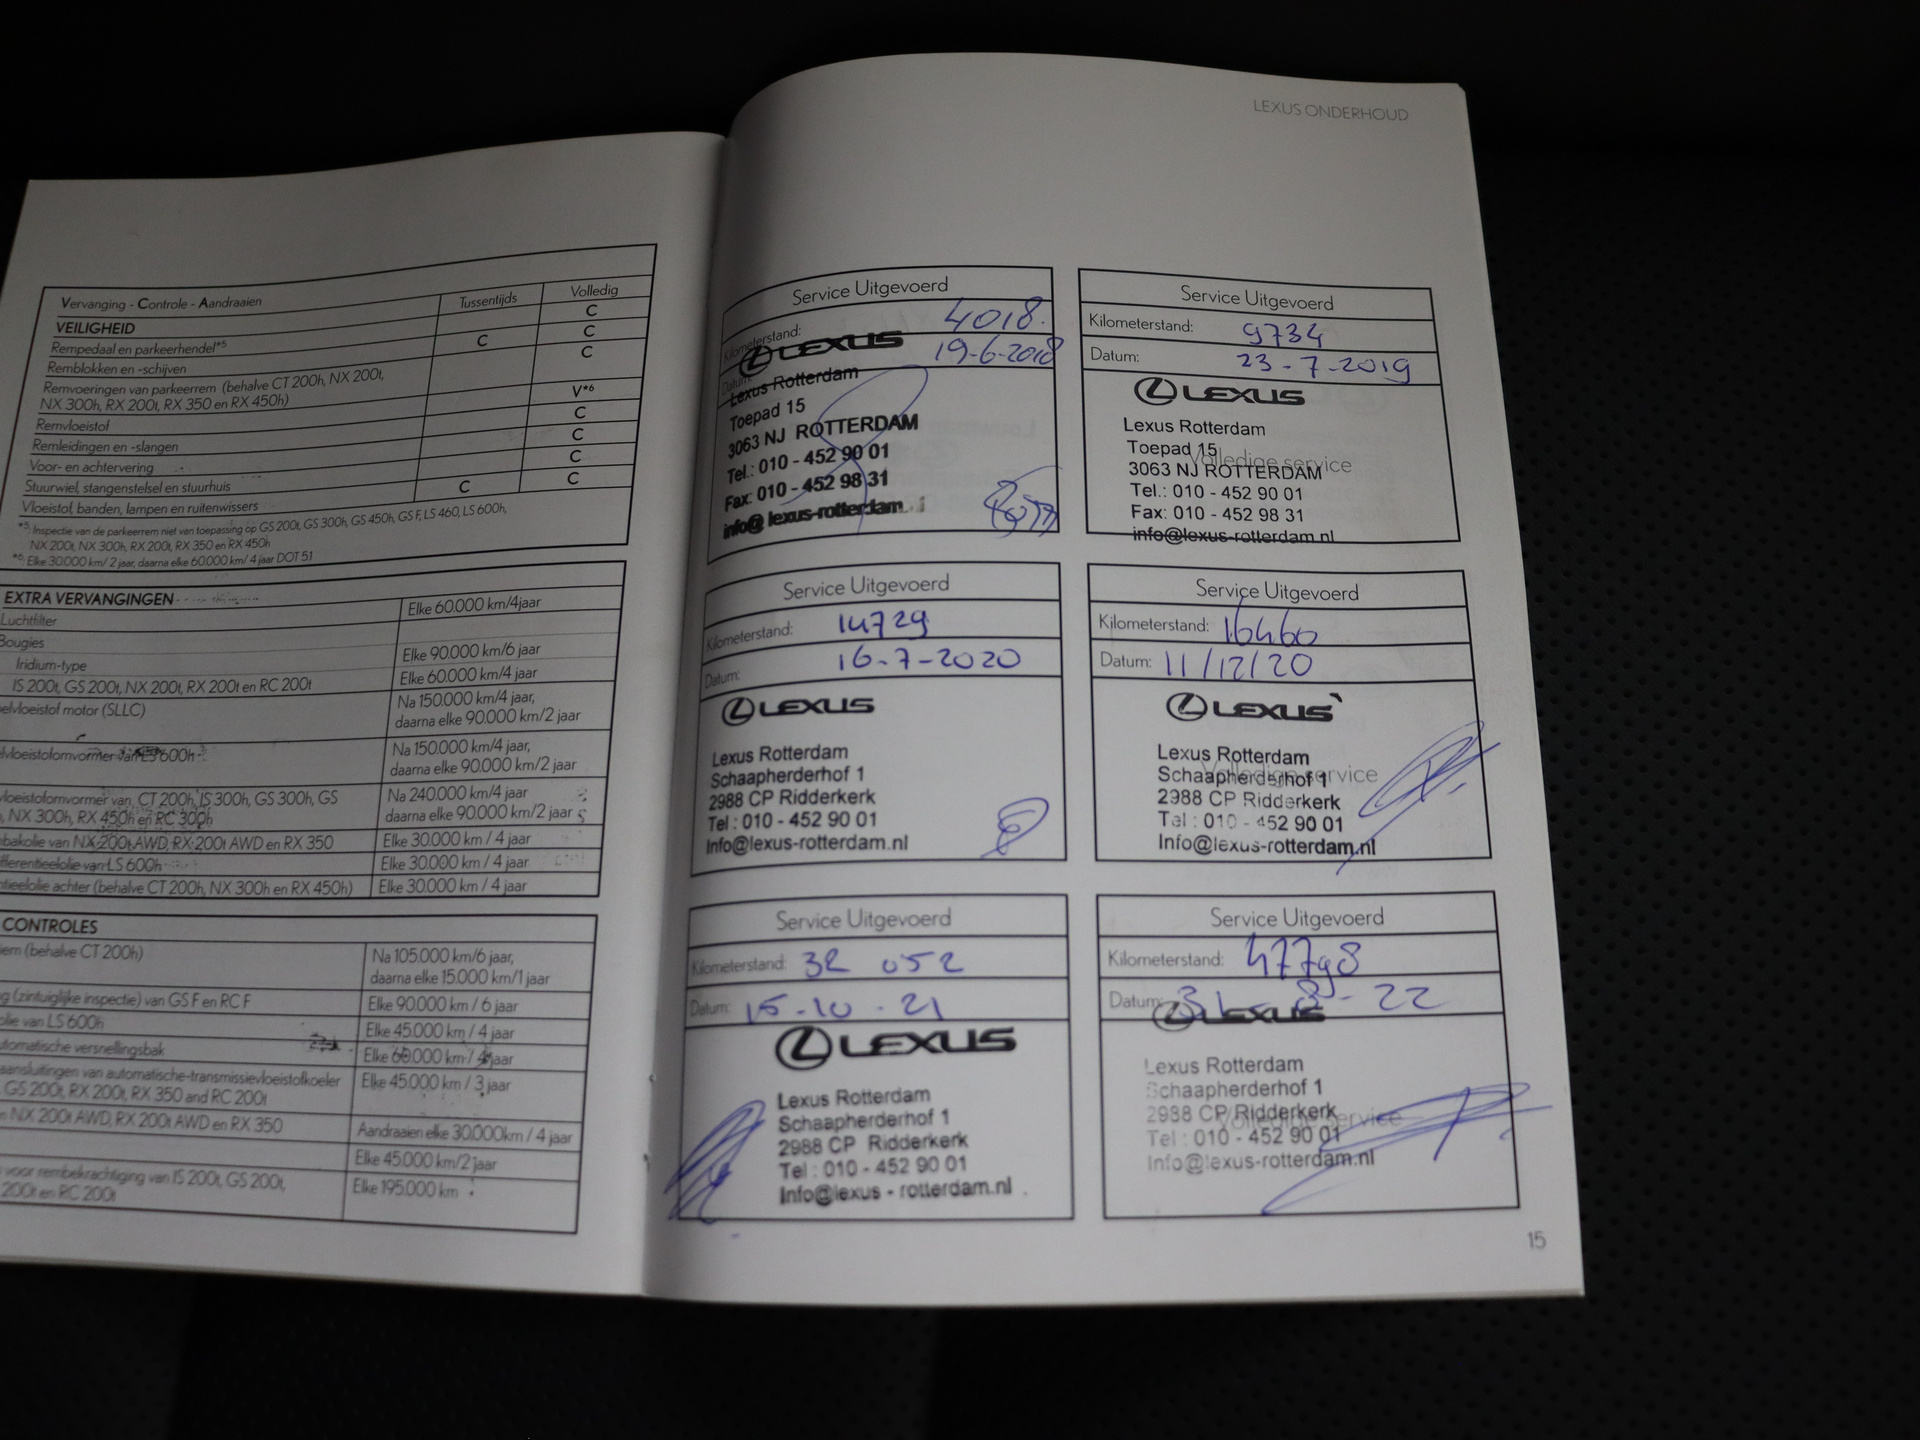 Vervanging - Controle - Aandraaien Tussentijds Volledig
VEILIGHEID C
Rempedaal en parkeerhendel*5 C
Remblokken en -schijven C C
Remvoeringen van parkeerrem (behalve CT 200h, NX 200t,
NX 300h, RX 200t, RX 350 en RX 450h)
Remvloeistof V*6
Remleidingen en -slangen C
Voor- en achtervering C
Stuurwiel, stangenstelsel en stuurhuis C
Vloeistof, banden, lampen en ruitenwissers C C
*5: Inspectie van de parkeerrem niet van toepassing op GS 200t, GS 300h, GS 450h, GS F, LS 460, LS 600h,
NX 200t, NX 300h, RX 200t, RX 350 en RX 450h
*6: Elke 30.000 km/ 2 jaar, daarna elke 60.000 km/ 4 jaar DOT 5.1
EXTRA VERVANGINGEN
Luchtfilter Elke 60.000 km/4jaar
Bougies
Iridium-type Elke 90.000 km/6 jaar
IS 200t, GS 200t, NX 200t, RX 200t en RC 200t Elke 60.000 km/4 jaar
elvloeistof motor (SLLC) Na 150.000 km/4 jaar,
daarna elke 90.000 km/2 jaar
elvloeistofomvormer van LS 600h Na 150.000 km/4 jaar,
daarna elke 90.000 km/2 jaar
vloeistofomvormer van, CT 200h, IS 300h, GS 300h, GS Na 240.000 km/4 jaar
, NX 300h, RX 450h en RC 300h daarna elke 90.000 km/2 jaar
bakolie van NX 200t AWD, RX 200t AWD en RX 350 Elke 30.000 km / 4 jaar
fferentieelolie van LS 600h Elke 30.000 km / 4 jaar
ntieelolie achter (behalve CT 200h, NX 300h en RX 450h) Elke 30.000 km / 4 jaar
CONTROLES
em (behalve CT 200h) Na 105.000 km/6 jaar,
daarna elke 15.000 km/1 jaar
g (zintuiglijke inspectie) van GS F en RC F Elke 90.000 km / 6 jaar
olie van LS 600h Elke 45.000 km / 4 jaar
utomatische versnellingsbak Elke 60.000 km / 4 jaar
aansluitingen van automatische-transmissievloeistofkoeler Elke 45.000 km / 3 jaar
, GS 200t, RX 200t, RX 350 and RC 200t
n NX 200t AWD, RX 200t AWD en RX 350 Aandraaien elke 30.000km / 4 jaar
Elke 45.000 km/2 jaar
voor rembekrachtiging van IS 200t, GS 200t, Elke 195.000 km
200t en RC 200t
LEXUS ONDERHOUD
Service Uitgevoerd
Kilometerstand: 4018.
Datum: 19-6-2018
LEXUS
Lexus Rotterdam
Toepad 15
3063 NJ ROTTERDAM
Tel.: 010 - 452 90 01
Fax: 010 - 452 98 31
info@lexus-rotterdam
Service Uitgevoerd
Kilometerstand: 9734
Datum: 23-7-2019
LEXUS
Lexus Rotterdam
Toepad 15
Volledige service
3063 NJ ROTTERDAM
Tel.: 010 - 452 90 01
Fax: 010 - 452 98 31
info@lexus-rotterdam.nl
Service Uitgevoerd
Kilometerstand: 14729
Datum: 16-7-2020
LEXUS
Lexus Rotterdam
Schaapherderhof 1
2988 CP Ridderkerk
Tel : 010 - 452 90 01
Info@lexus-rotterdam.nl
Service Uitgevoerd
Kilometerstand: 16460
Datum: 11/12/20
LEXUS
Lexus Rotterdam
Schaapherderhof 1
Volledige service
2988 CP Ridderkerk
Tel : 010 - 452 90 01
Info@lexus-rotterdam.nl
Service Uitgevoerd
Kilometerstand: 32 052
Datum: 15-10-21
LEXUS
Lexus Rotterdam
Schaapherderhof 1
2988 CP Ridderkerk
Tel : 010 - 452 90 01
Info@lexus - rotterdam.nl
Service Uitgevoerd
Kilometerstand: 47798
Datum: 31-8-22
LEXUS
Lexus Rotterdam
Schaapherderhof 1
2988 CP Ridderkerk
Volledige service
Tel : 010 - 452 90 01
Info@lexus-rotterdam.nl
15